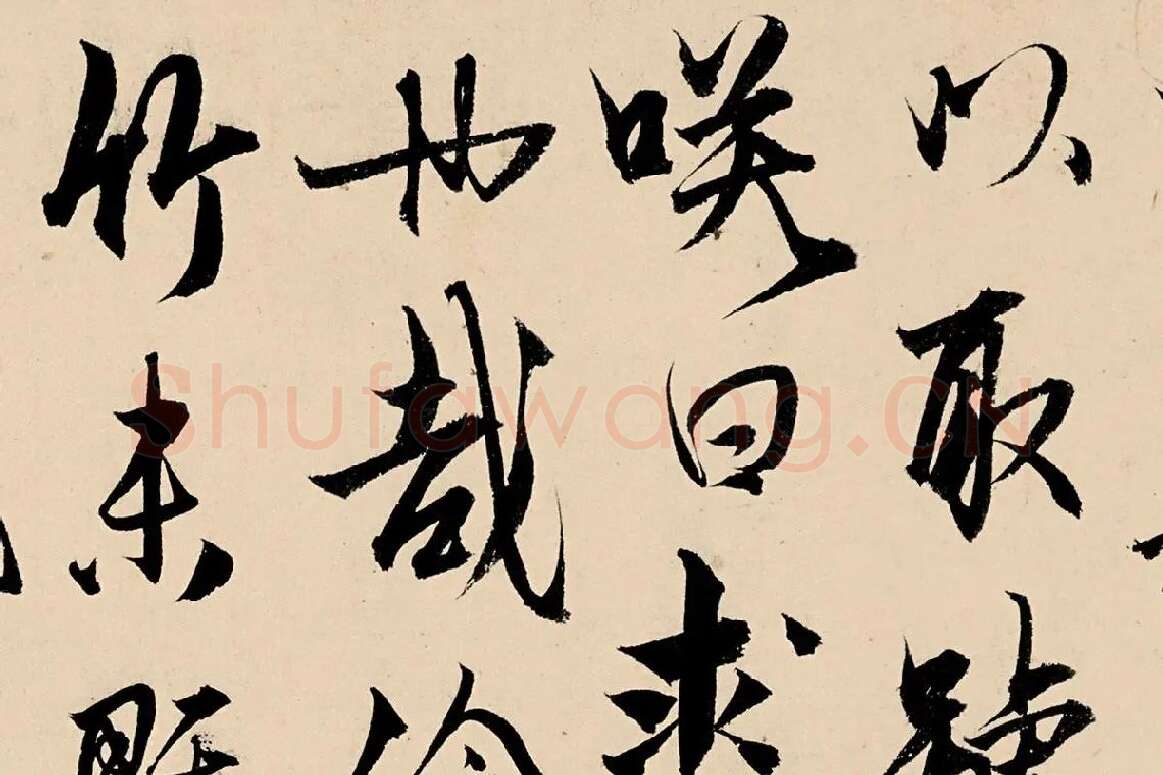 以取號
咲曰求
也哉
竹未
Shufawang.CN